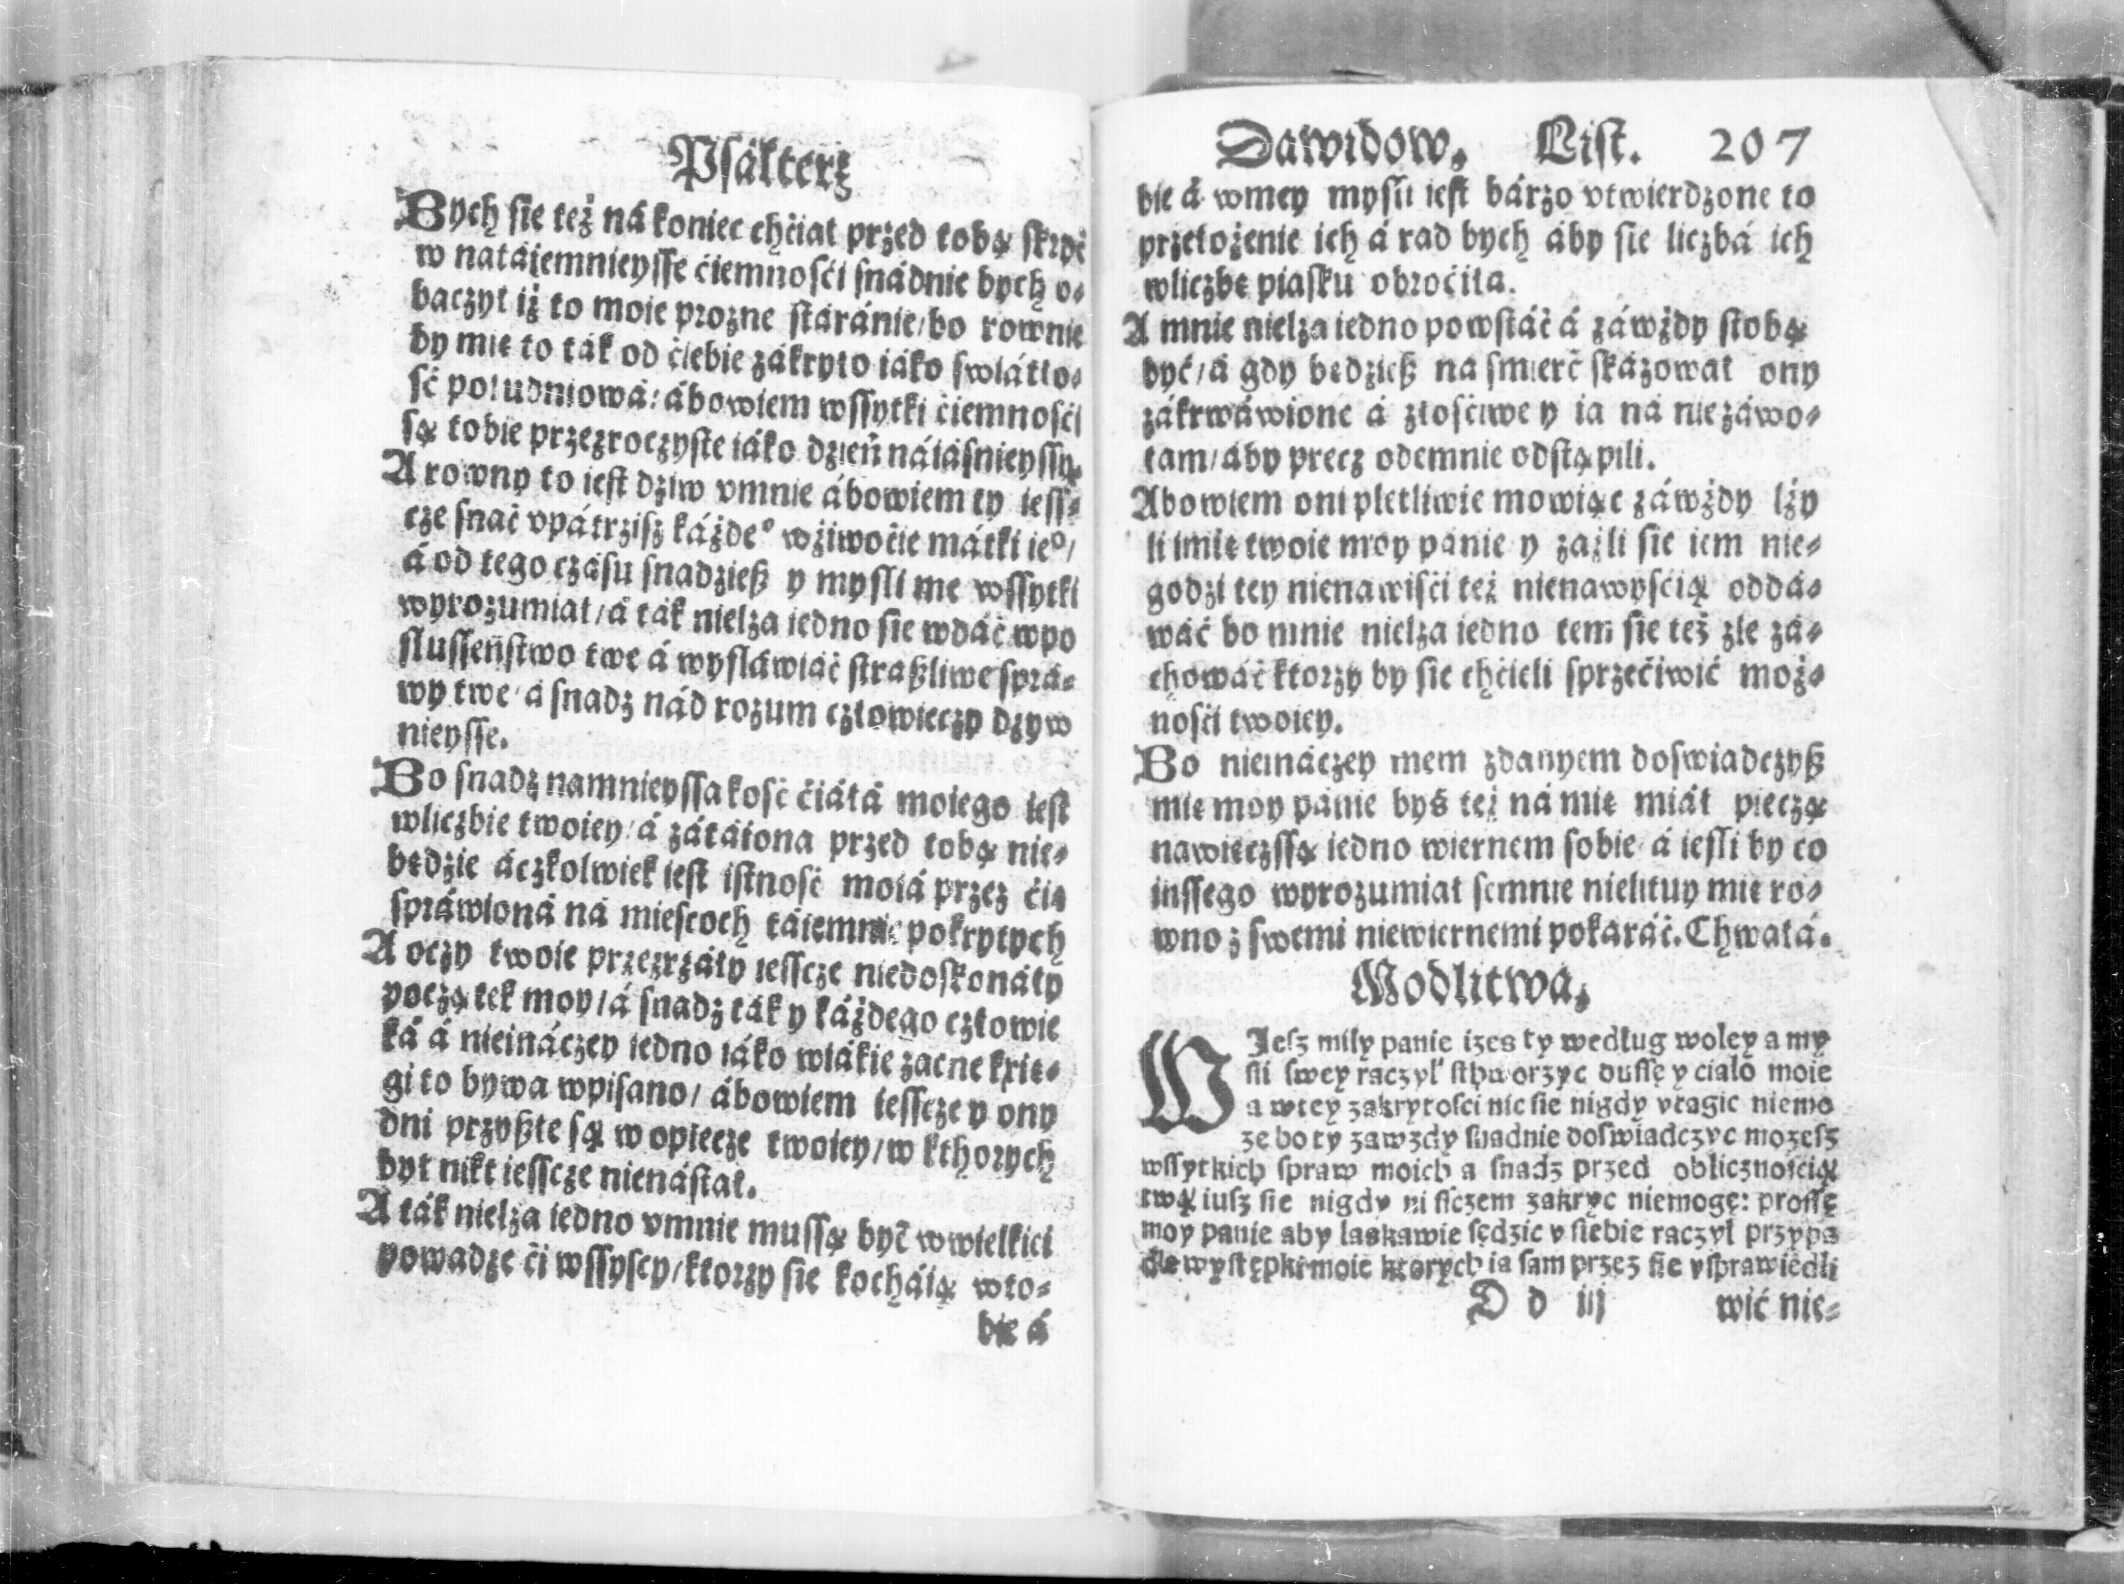 Psálterz
Bych sie też ná koniec chćiał przed tobą skryć
w natájemnieysse ćiemnośći snádnie bych o-
baczył iż to moie prozne stáránie/ bo rownie
by mie to ták od ćiebie zákryło iáko swiátło-
ść południowa/ ábowiem wssytki ćiemnośći
są tobie przezroczyste iáko dzień náiáśnieyssy.
A rowny to iest dziw vmnie ábowiem ty iess-
cze snać vpátrzisz káżdeº wżiwoćie mátki ieº/
á od tego czásu snadzieß y mysli me wssytki
wyrozumiał/ á ták nielza iedno sie wdáć wpo
słusseństwo twe á wysławiáć straßliwe sprá-
wy twe/ á snadz nád rozum człowieczy dzyw
nieysse.
Bo snadz namnieyssa kość ćiáłá moiego iest
wliczbie twoiey/ á zátáiona przed tobą nie-
będzie áczkolwiek iest istność moiá przez ćię
spráwioná ná miescoch táiemnie pokrytych
A oczy twoie przezrzáły iesscze niedoskonáły
początek moy/ á snadz ták y káżdego człowie
ká á nieináczey iedno iáko wiákie zacne kxię-
gi to bywa wpisano/ ábowiem iesscze y ony
dni przyßłe są w opiecze twoiey/ w kthorych
był nikt iesscze nienástał.
A ták nielza iedno vmnie mussą być wwielkiei
powadze ći wssyscy/ ktorzy sie kocháią wto-
bie á
Dawidow. List. 207
bie á wmey mysli iest bárzo vtwierdzone to
przełożenie ich á rad bych áby sie liczbá ich
wliczbę piasku obroćiła.
A mnie nielza iedno powstáć á záwżdy stobą
być/ á gdy będzieß na smierć skázował ony
zákrwáwione á złośćiwe y ia ná nie záwo-
łam/ áby precz odemnie odstąpili.
Abowiem oni pletliwie mowiąc záwżdy lży
li imię twoie moy pánie y zaźli sie iem nie-
godzi tey nienawiśći też nienawyśćią oddá-
wáć bo mnie nielza iedno tem sie też zle zá-
chowáć ktorzy by sie chćieli sprzećiwić moż-
nośći twoiey.
Bo nieináczey mem zdanyem doswiadczyß
mię moy pánie byś też ná mię miáł pieczą
nawięczssą iedno wiernem sobie/ á iesli by co
inssego wyrozumiał semnie nielituy mię ro-
wno z swemi niewiernemi pokaráć. Chwałá.
Modlitwa.
WJesz miły panie izes ty według woley a my
sli swey raczył sthworzyc dussę y ciało moie
a wtey zakrytosci nic sie nigdy vtagic niemo
ze bo ty zawzdy snadnie doswiadczyc mozesz
wssytkich spraw moich a snadz przed oblicznoscią
twą iusz sie nigdy ni sczem zakryc niemogę: prossę
moy panie aby laskawie sędzic v siebie raczył przypa
dłe występki moie ktorych ia sam przez sie vsprawiedli
D d iij wić nie-